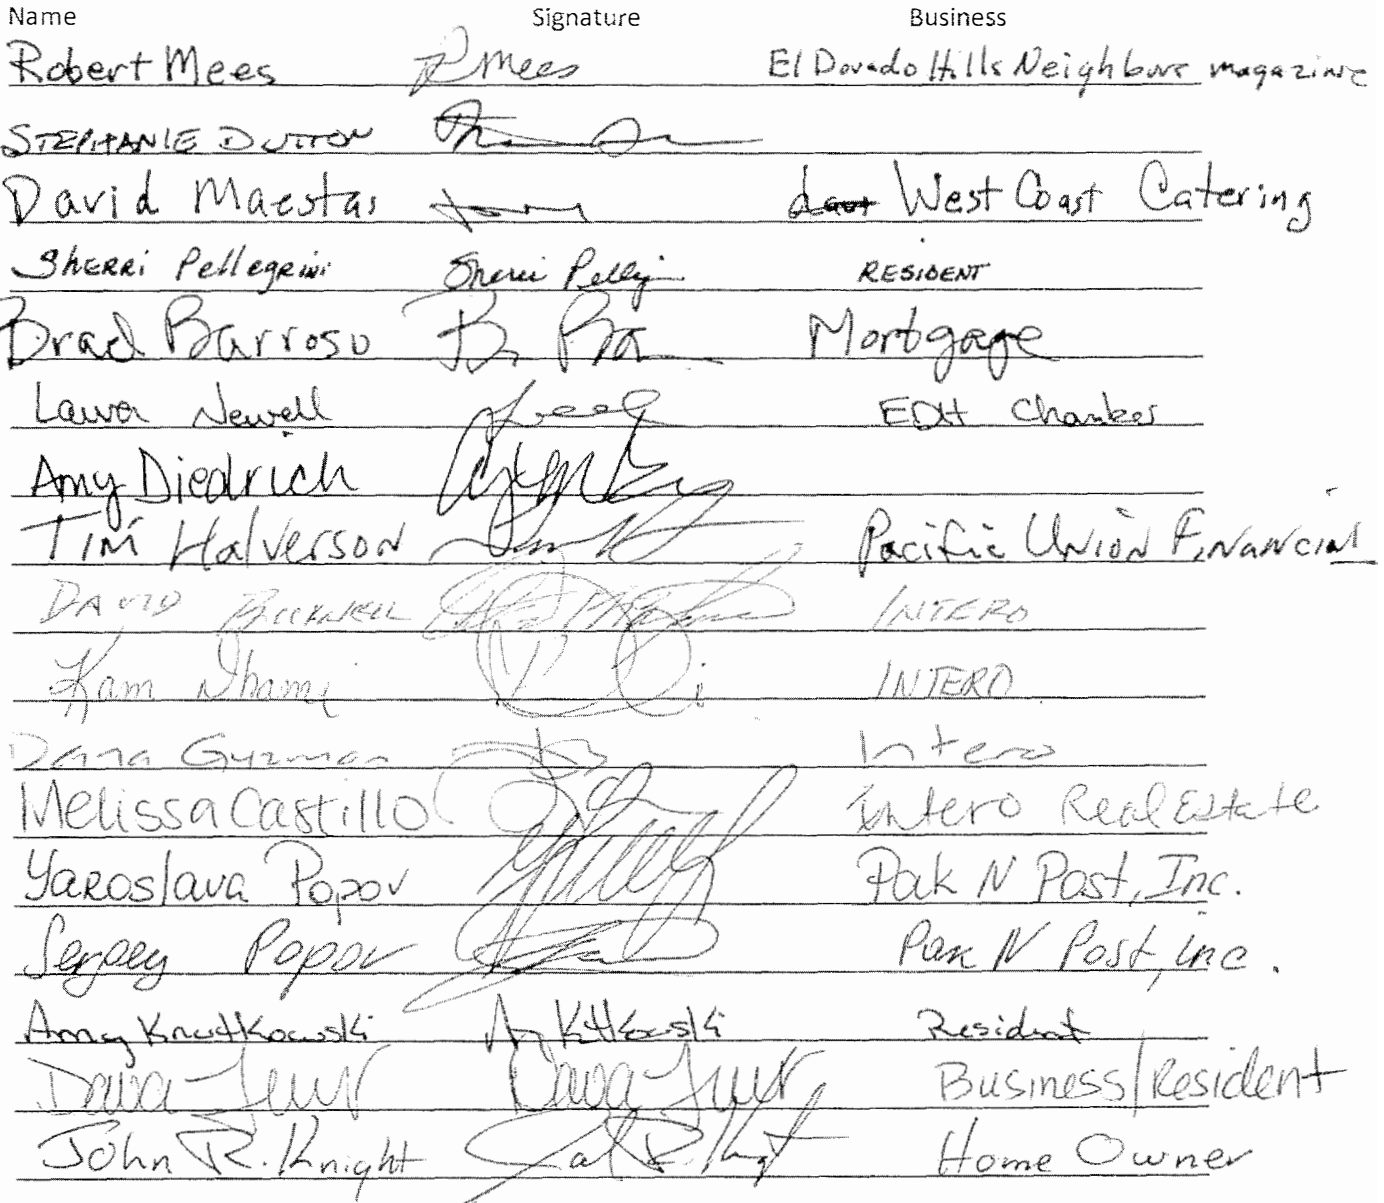 Name Signature Business
Robert Mees R Mees El Dorado Hills Neighbors magazine
STEPHANIE DUTTON
David Maestas West Coast Catering
SHERRI PELLEGRINI Sherri Pelleg RESIDENT
Brad Barroso B. Ba Mortgage
Laura Newell EDH Chamber
Amy Diedrich
TIM Halverson Pacific Union Financial
DAVID INTERO
Kam Dhami INTERO
Dana Guzman Intero
Melissa Castillo Intero Real Estate
Yaroslava Popov Pak N Post, Inc.
Sergey Popov Pak N Post, inc.
Amy Knutkowski Resident
Dana Dana Business/Resident
John R. Knight Home Owner